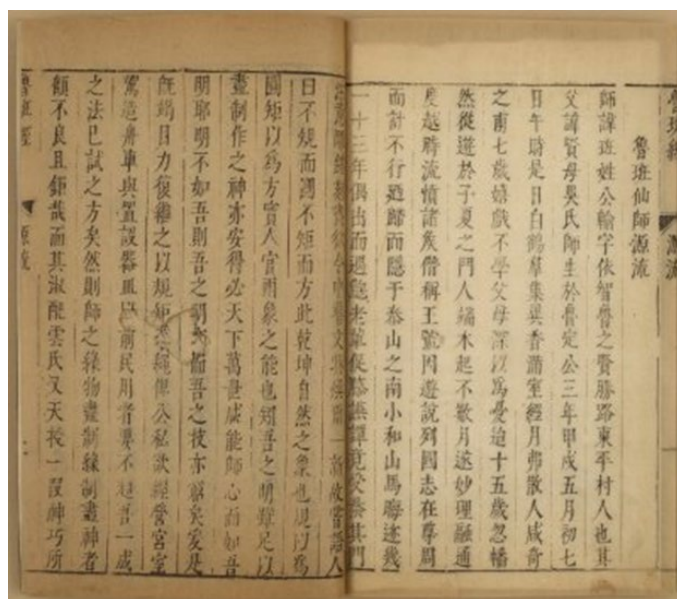 魯班經
源流
魯班仙師源流
師諱班姓公輸字依智魯之賢勝路東平村人也其
父諱賢母吳氏師生於魯定公三年甲戌五月初七
日午時是日白鶴羣集異香滿室經月弗散人咸奇
之甫七歲嬉戲不學父母深以為憂迨十五歲忽幡
然從遊於子夏之門人端木起不數月遂妙理融通
度越時流憤諸矦僭稱王號因遊說列國志在尊周
而計不行廼歸而隱于泰山之南小和山焉晦迹幾
一十三年偶出而遇鮑老輩促膝讌譚竟受業其門
日不規而圓不矩而方此乾坤自然之象也規以為
圓矩以為方實人官兩象之能也矧吾之明雖足以
盡制作之神亦安得必天下萬世咸能師心而如吾
明耶明不如吾則吾之明窮而吾之技亦窮矣爰是
既竭目力復繼之以規矩準繩俾公私欲經營宮室
駕造舟車與置設器皿以前民用者要不超吾一成
之法已試之方矣然則師之緣物盡制緣制盡神者
顧不良且鉅哉而其淑配雲氏又天授一段神巧所
魯班經
源流